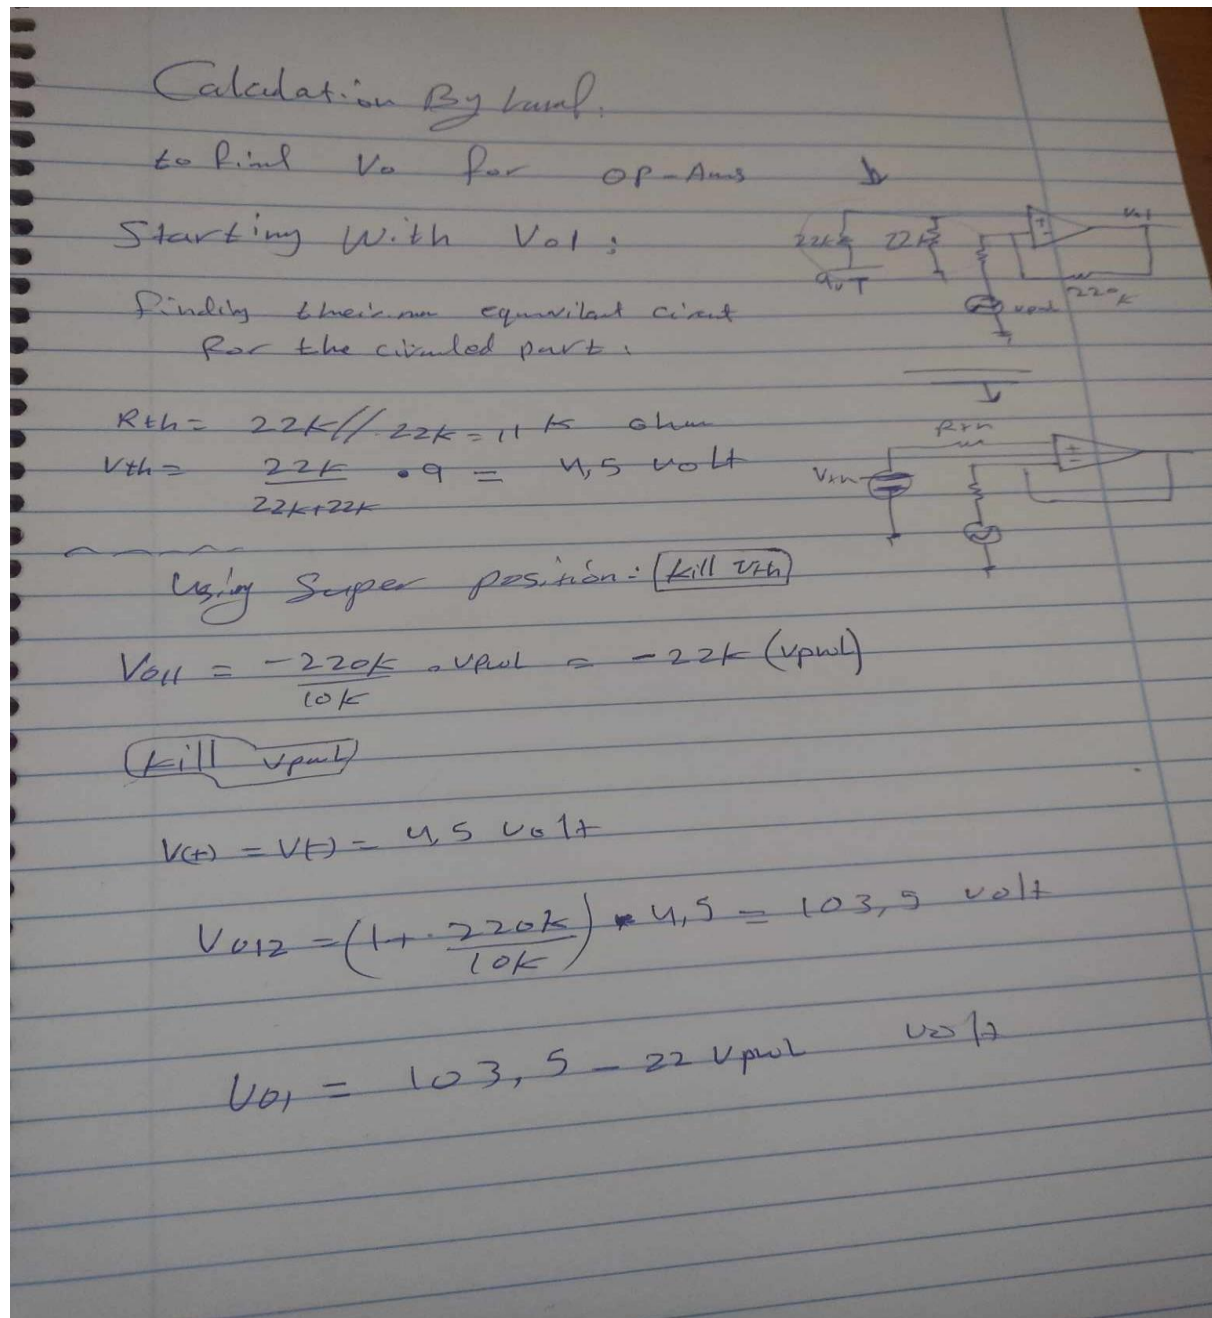 Calculation By hand.
to find Vo for OP-Ams
Starting With Vo1:
22k 22k Vo1
9v
220k
vpwl
finding equivilant
for the part:
Rth = 22k // 22k = 11 k ohm
Vth = 22k/(22k+22k) • 9 = 4,5 volt
Rth
Vth
Using Super position: kill Vth
Vo11 = -220k/10k • vpwl = -22k (vpwl)
kill vpwl
V(+) = V(-) = 4,5 volt
Vo12 = (1 + 220k/10k) • 4,5 = 103,5 volt
Vo1 = 103,5 - 22 Vpwl volt